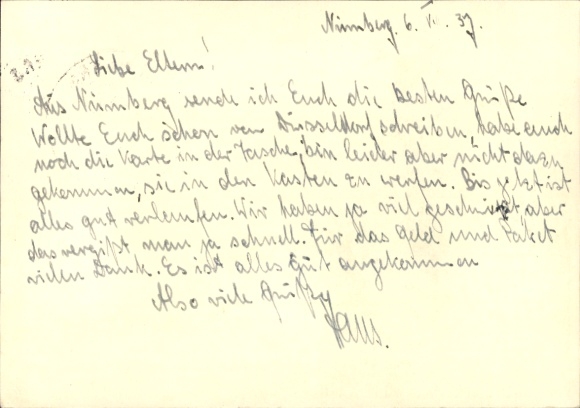 Nürnberg. 6. VI. 37.
Liebe Eltern!
Aus Nürnberg sende ich Euch die besten Grüße
Wollte Euch schon von Düsseldorf schreiben, habe auch
noch die Karte in der Tasche, bin leider aber nicht dazu
gekommen, sie in den Kasten zu werfen. Bis jetzt ist
alles gut verlaufen. Wir haben ja viel aber
das vergißt man ja schnell. Für das Geld und Paket
vielen Dank. Es ist alles gut angekommen
Also viele Grüße
Hans.